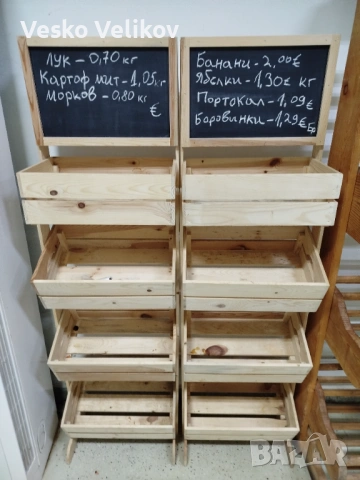 Vesko Velikov
Лук - 0,70 кг
Картоф мит - 1,05 кг
Морков - 0,80 кг
€
Банани - 2,00€
Ябълки - 1,30€ кг
Портокал - 1,09€
Боровинки - 1,29€ Бр
BAZAR